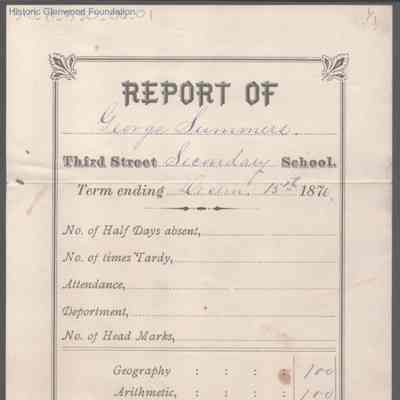 Historic Glenwood Foundation
REPORT OF
George Summers.
Third Street Secondary School.
Term ending Decem. 15th 1876
No. of Half Days absent,
No. of times Tardy,
Attendance,
Deportment,
No. of Head Marks,
Geography : : : : 100
Arithmetic, : : : : 100